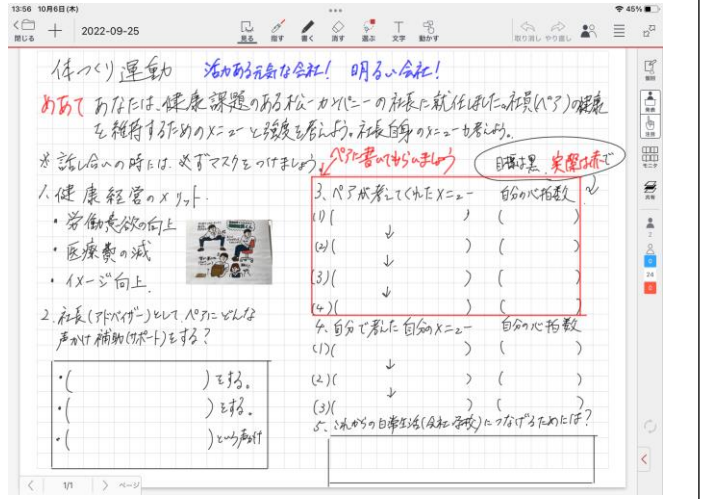 13:56 10月6日(木)
45%
閉じる
2022-09-25
見る 指す 書く 消す 選ぶ 文字 動かす
取り消し やり直し
体つくり運動 活力ある元気な会社! 明るい会社!
めあて あなたは、健康課題のある松一カンパニーの社長に就任しました。社員(ペア)の健康
を維持するためのメニューと強度を考えよう。社長自身のメニューも考えよう。
※話し合いの時には、必ずマスクをつけましょう。
ペアに書いてもらいましょう
目標は黒、実際は赤で
1.健康経営のメリット
・労働意欲の向上
・医療費の減
・イメージ向上
2.社長(アドバイザー)として、ペアにどんな
声かけ補助(サポート)をする?
・( )をする。
・( )をする。
・( )という声かけ
3.ペアが考えてくれたメニュー 自分の心拍数
(1)( ) ( )
↓
(2)( ) ( )
↓
(3)( ) ( )
(4)( ) ( )
4.自分で考えた自分のメニュー 自分の心拍数
(1)( ) ( )
↓
(2)( ) ( )
↓
(3)( ) ( )
5.これからの日常生活(会社、学校)につなげるためには?
発表
注目
モニタ
共有
2
0
24
0
1/1
ページ